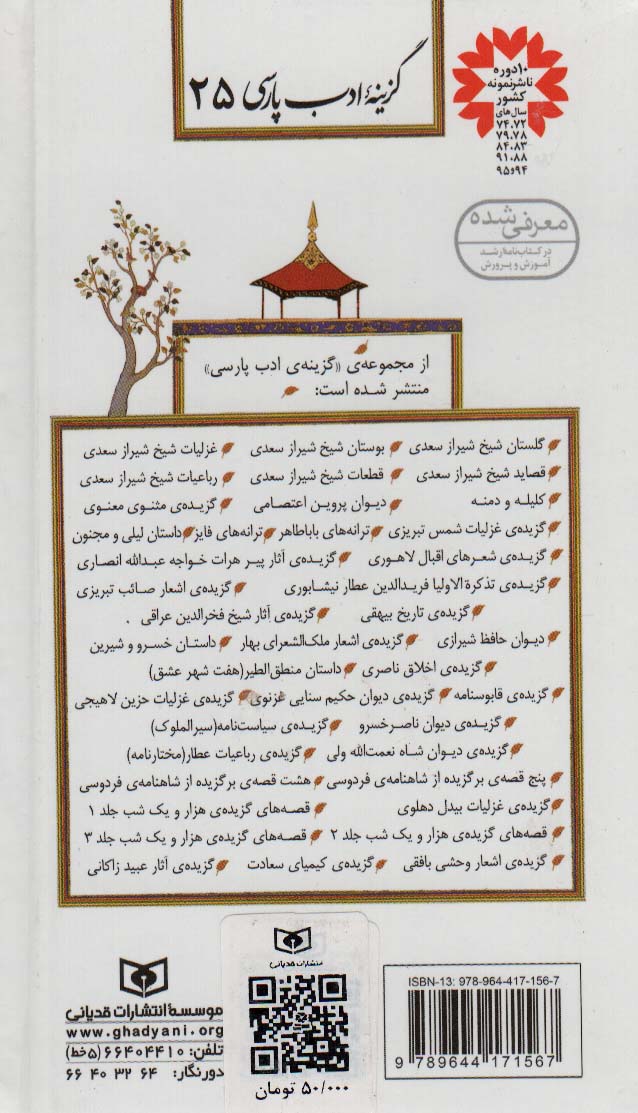 گزینهٔ ادب پارسی ۲۵
۱۰ دوره
ناشر نمونه
کشور
سال‌های
۷۴،۷۲
۷۹،۷۸
۸۴،۸۳
۹۱،۸۸
۹۴و۹۵
معرفی شده
در کتاب‌نامهٔ رشد
آموزش و پرورش
از مجموعه‌ی «گزینه‌ی ادب پارسی»
منتشر شده است:
گلستان شیخ شیراز سعدی بوستان شیخ شیراز سعدی غزلیات شیخ شیراز سعدی
قصاید شیخ شیراز سعدی قطعات شیخ شیراز سعدی رباعیات شیخ شیراز سعدی
کلیله و دمنه دیوان پروین اعتصامی گزیده‌ی مثنوی معنوی
گزیده‌ی غزلیات شمس تبریزی ترانه‌های باباطاهر ترانه‌های فایز داستان لیلی و مجنون
گزیده‌ی شعرهای اقبال لاهوری گزیده‌ی آثار پیر هرات خواجه عبدالله انصاری
گزیده‌ی تذکرة الاولیا فریدالدین عطار نیشابوری گزیده‌ی اشعار صائب تبریزی
گزیده‌ی تاریخ بیهقی گزیده‌ی آثار شیخ فخرالدین عراقی
دیوان حافظ شیرازی گزیده‌ی اشعار ملک‌الشعرای بهار داستان خسرو و شیرین
گزیده‌ی اخلاق ناصری داستان منطق‌الطیر(هفت شهر عشق)
گزیده‌ی قابوسنامه گزیده‌ی دیوان حکیم سنایی غزنوی گزیده‌ی غزلیات حزین لاهیجی
گزیده‌ی دیوان ناصرخسرو گزیده‌ی سیاست‌نامه(سیرالملوک)
گزیده‌ی دیوان شاه نعمت‌الله ولی گزیده‌ی رباعیات عطار(مختارنامه)
پنج قصه‌ی برگزیده از شاهنامه‌ی فردوسی هشت قصه‌ی برگزیده از شاهنامه‌ی فردوسی
گزیده‌ی غزلیات بیدل دهلوی قصه‌های گزیده‌ی هزار و یک شب جلد ۱
قصه‌های گزیده‌ی هزار و یک شب جلد ۲ قصه‌های گزیده‌ی هزار و یک شب جلد ۳
گزیده‌ی اشعار وحشی بافقی گزیده‌ی کیمیای سعادت گزیده‌ی آثار عبید زاکانی
ISBN-13: 978-964-417-156-7
9 789644 171567
انتشارات قدیانی
۵۰/۰۰۰ تومان
موسسهٔ انتشارات قدیانی
www.ghadyani.org
تلفن: ۶۶۴۰۴۴۱۰ (۵خط)
دورنگار: ۶۶ ۴۰ ۳۲ ۶۴